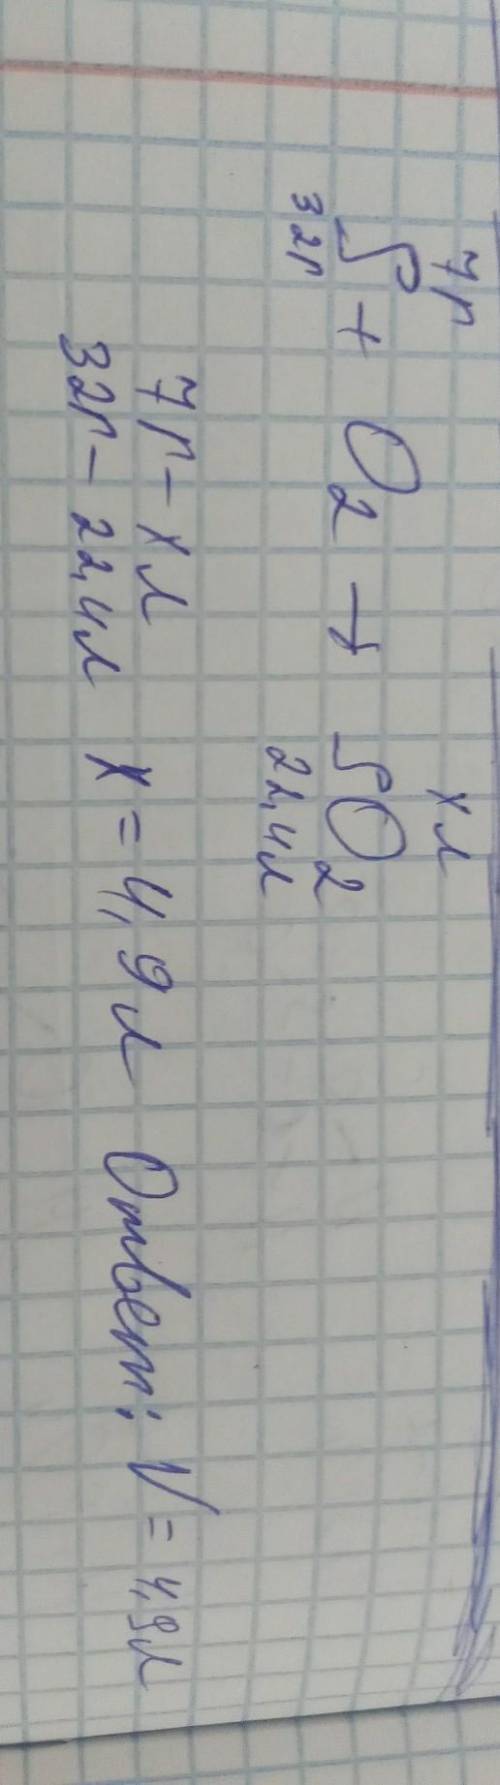 7г хл
S + O2 → SO2
32г 22,4л
7г – хл
32г – 22,4л х = 4,9л Ответ: V = 4,9л